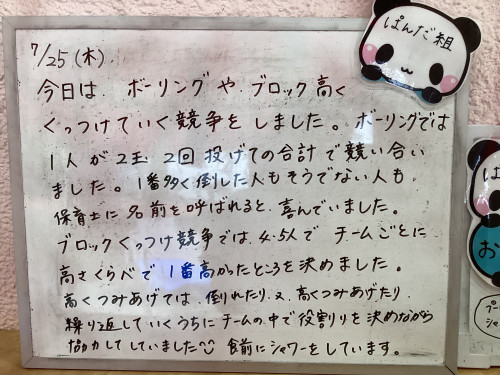 7/25(木).
ぱんだ組
今日は、ボーリングや、ブロック高く
くっつけていく競争をしました。ボーリングでは
1人が2玉2回投げての合計で競い合い
ました。1番多く倒した人もそうでない人も、
保育士に名前を呼ばれると、喜んでいました。
ブロックくっつけ競争では、4.5人でチームごとに
高さくらべで1番高かったところを決めました。
高くつみあげては、倒れたり、又、高くつみあげたり、
繰り返していくうちにチームの中で役割りを決めながら
協力してしていました 食前にシャワーをしています。
ぱ
お